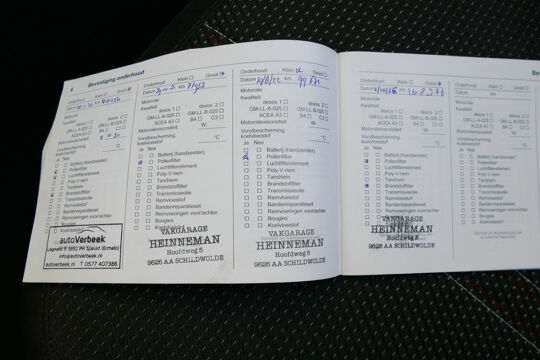 6
Bevestiging onderhoud
Onderhoud Klein Groot
Datum km
Motorolie
Kwaliteit:
dexos 1 dexos 2
GM-LL-A-025 GM-LL-B-025
ACEA A3 B4 C3
Motorolieviscositeit W-
Vorstbescherming,
koelvloeistof °C
Ja Nee
Batterij (handzender)
Pollenfilter
Luchtfilterelement
Poly-V-riem
Tandriem
Brandstoffilter
Transmissieolie
Remvloeistof
Bandenreparatieset
Remvoeringen voor/achter
Bougies
autoVerbeek
info@autoverbeek.nl
autoverbeek.nl T 0577 407386
Onderhoud Klein Groot
Datum km
Motorolie
Kwaliteit:
dexos 1 dexos 2
GM-LL-A-025 GM-LL-B-025
ACEA A3 B4 C3
Motorolieviscositeit W-
Vorstbescherming,
koelvloeistof °C
Ja Nee
Batterij (handzender)
Pollenfilter
Luchtfilterelement
Poly-V-riem
Tandriem
Brandstoffilter
Transmissieolie
Remvloeistof
Bandenreparatieset
Remvoeringen voor/achter
Bougies
Koelvloeistof
VAKGARAGE
HEINNEMAN
Hoofdweg 5
9626 AA SCHILDWOLDE
Onderhoud Klein Groot
Datum km
Motorolie
Kwaliteit:
dexos 1 dexos 2
GM-LL-A-025 GM-LL-B-025
ACEA A3 B4 C3
Motorolieviscositeit W-
Vorstbescherming,
koelvloeistof °C
Ja Nee
Batterij (handzender)
Pollenfilter
Luchtfilterelement
Poly-V-riem
Tandriem
Brandstoffilter
Transmissieolie
Remvloeistof
Bandenreparatieset
Remvoeringen voor/achter
Bougies
Koelvloeistof
VAKGARAGE
HEINNEMAN
Hoofdweg 5
9626 AA SCHILDWOLDE
Bevestiging onderhoud
Onderhoud Klein Groot
Datum
Motorolie
Kwaliteit:
dexos 1 dexos 2
GM-LL-A-025 GM-LL-B-025
ACEA A3 B4 C3
Motorolieviscositeit W-
Vorstbescherming,
koelvloeistof °C
Ja Nee
Batterij (handzender)
Pollenfilter
Luchtfilterelement
Poly-V-riem
Tandriem
Brandstoffilter
Transmissieolie
Remvloeistof
Bandenreparatieset
Remvoeringen voor/achter
Bougies
VAKGARAGE
HEINNEMAN
Hoofdweg 5
9626 AA SCHILDWOLDE
Onderhoud Klein Groot
Datum km
Motorolie
Kwaliteit:
dexos 1 dexos 2
GM-LL-A-025 GM-LL-B-025
ACEA A3 B4 C3
Motorolieviscositeit W-
Vorstbescherming,
koelvloeistof °C
Ja Nee
Batterij (handzender)
Pollenfilter
Luchtfilterelement
Poly-V-riem
Tandriem
Brandstoffilter
Transmissieolie
Remvloeistof
Bandenreparatieset
Remvoeringen voor/achter
Bougies
Koelvloeistof